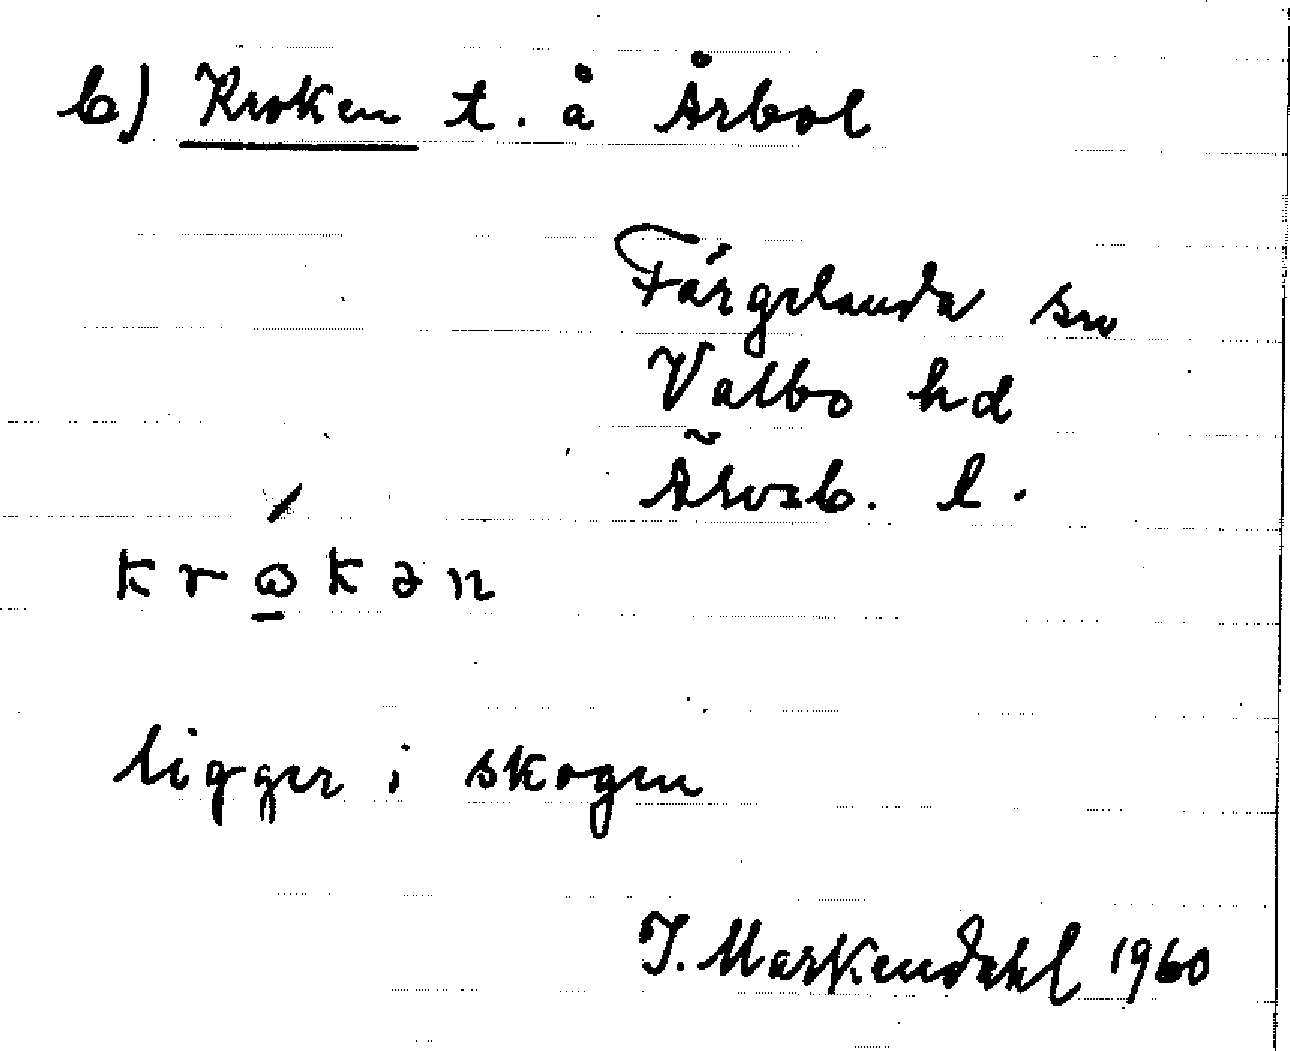 b) Kroken t. å Årbol
Färgelanda sn
Valbo hd
Älvsb. l.
krωkən
ligger i skogen
J. Markendahl 1960